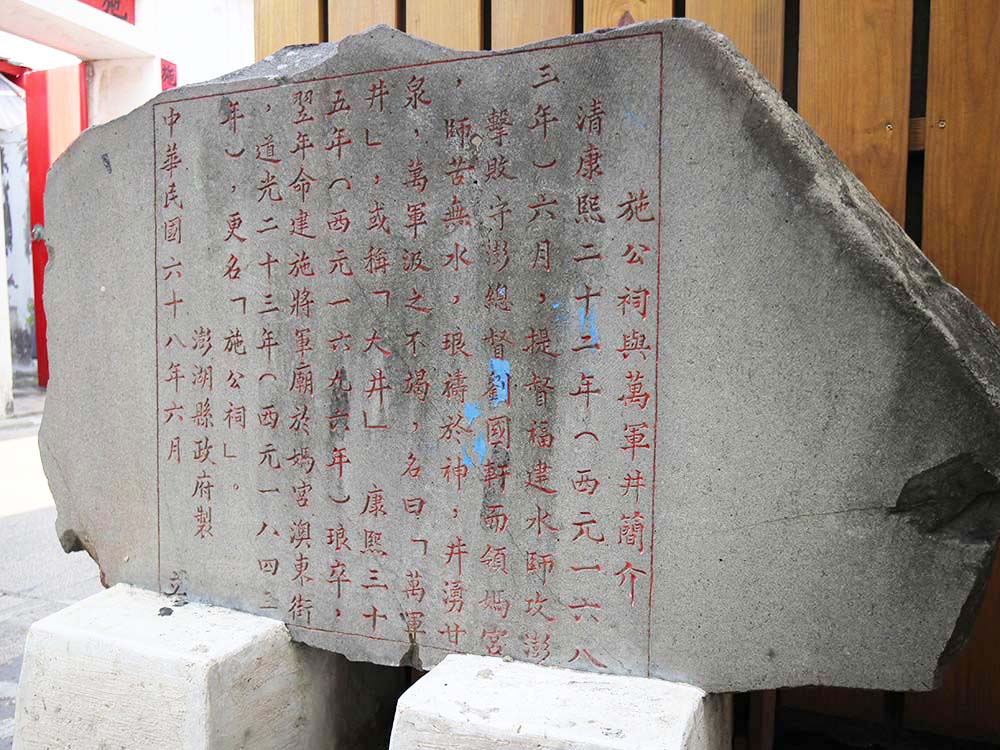 施公祠與萬軍井簡介
清康熙二十二年（西元一六八
三年）六月，提督福建水師攻澎
擊敗守澎總督劉國軒而領媽宮
，師苦無水，琅禱於神，井湧甘
泉，萬軍汲之不竭，名曰「萬軍
井」，或稱「大井」康熙三十
五年（西元一六九六年）琅卒，
翌年命建施將軍廟於媽宮澳東街
，道光二十三年（西元一八四三
年），更名「施公祠」。
澎湖縣政府製
立
中華民國六十八年六月
施